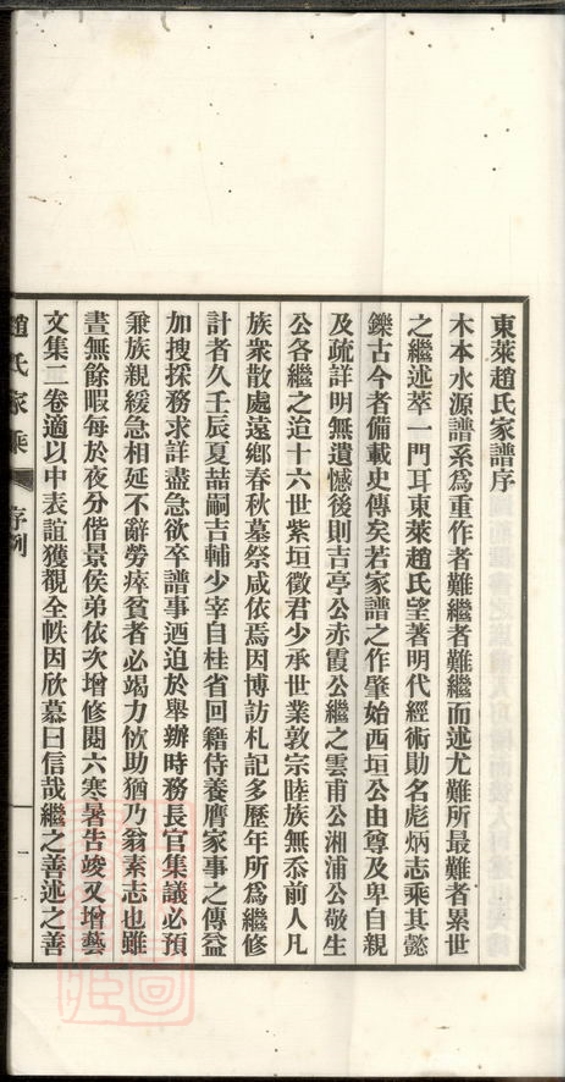 東萊趙氏家譜序
木本水源譜系爲重作者難繼者難繼而述尤難所最難者累世
之繼述萃一門耳東萊趙氏望著明代經術勛名彪炳志乘其懿
鑠古今者備載史傳矣若家譜之作肇始西垣公由尊及卑自親
及疏詳明無遺憾後則吉亭公亦霞公繼之雲甫公湘浦公敬生
公各繼之迨十六世紫垣徵君少承世業敦宗睦族無忝前人凡
族衆散處遠鄉春秋墓祭咸依焉因博訪札記多歷年所爲繼修
計者久壬辰夏喆嗣吉輔少宰自桂省回籍侍養膺家事之傳益
加搜採務求詳盡急欲卒譜事迺迫於舉辦時務長官集議必預
兼族親緩急相延不辭勞瘁貧者必竭力佽助猶乃翁素志也雖
晝無餘暇每於夜分偕景侯弟依次增修閱六寒暑告竣又增藝
文集二卷適以中表誼獲覩全帙因欣慕曰信哉繼之善述之善
趙氏家乘
序例
一